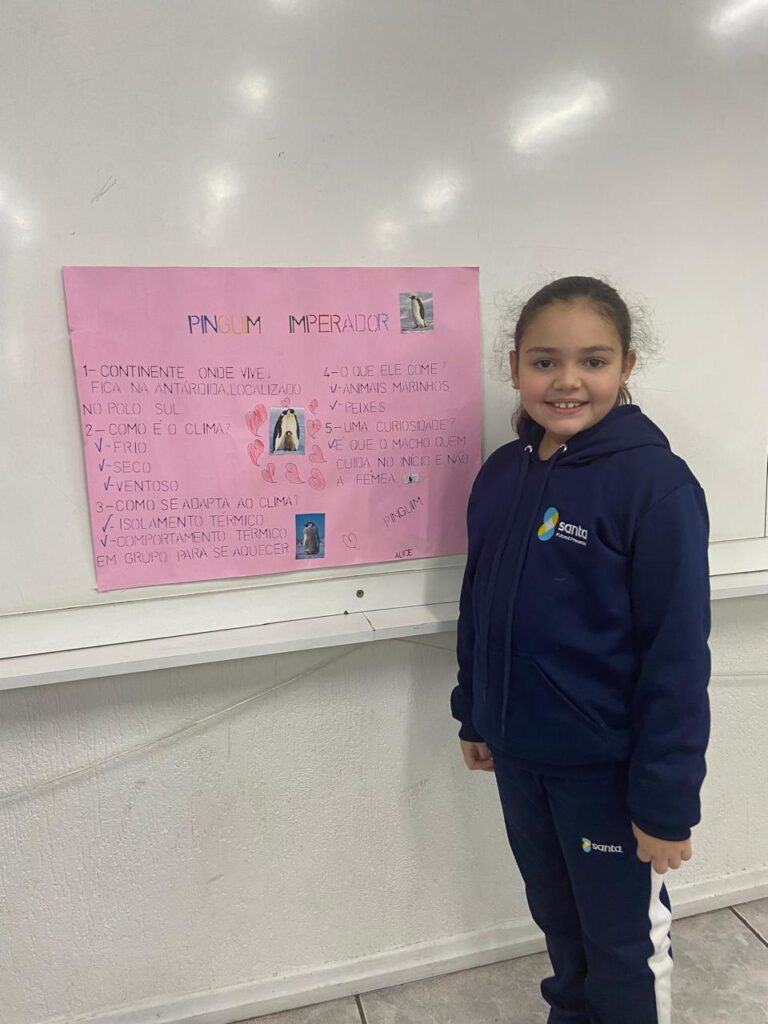 PINGUIM IMPERADOR
1- CONTINENTE ONDE VIVE:
FICA NA ANTÁRDIDA, LOCALIZADO
NO POLO SUL
2- COMO É O CLIMA?
✓-FRIO
✓-SECO
✓-VENTOSO
3- COMO SE ADAPTA AO CLIMA?
✓- ISOLAMENTO TÉRMICO
✓- COMPORTAMENTO TÉRMICO
EM GRUPO PARA SE AQUECER
4-O QUE ELE COME?
✓-ANIMAIS MARINHOS
✓- PEIXES
5-UMA CURIOSIDADE?
✓É QUE O MACHO QUEM
CUIDA NO INÍCIO E NÃO
A FÊMEA.
PINGUIM
ALICE
santa
santa